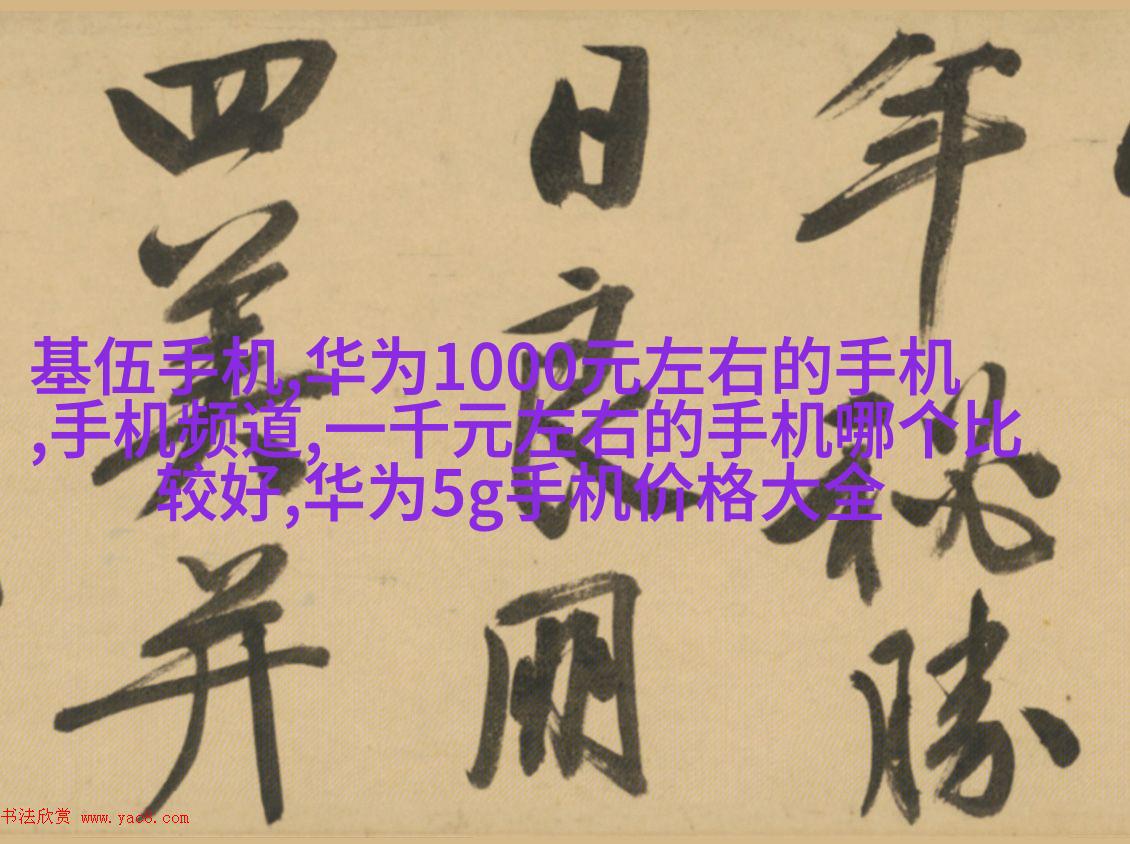 年秘勝
日良朋
四美并
基伍手机,华为1000元左右的手机
,手机频道,一千元左右的手机哪个比
较好,华为5g手机价格大全
书法欣赏 www.yac8.com